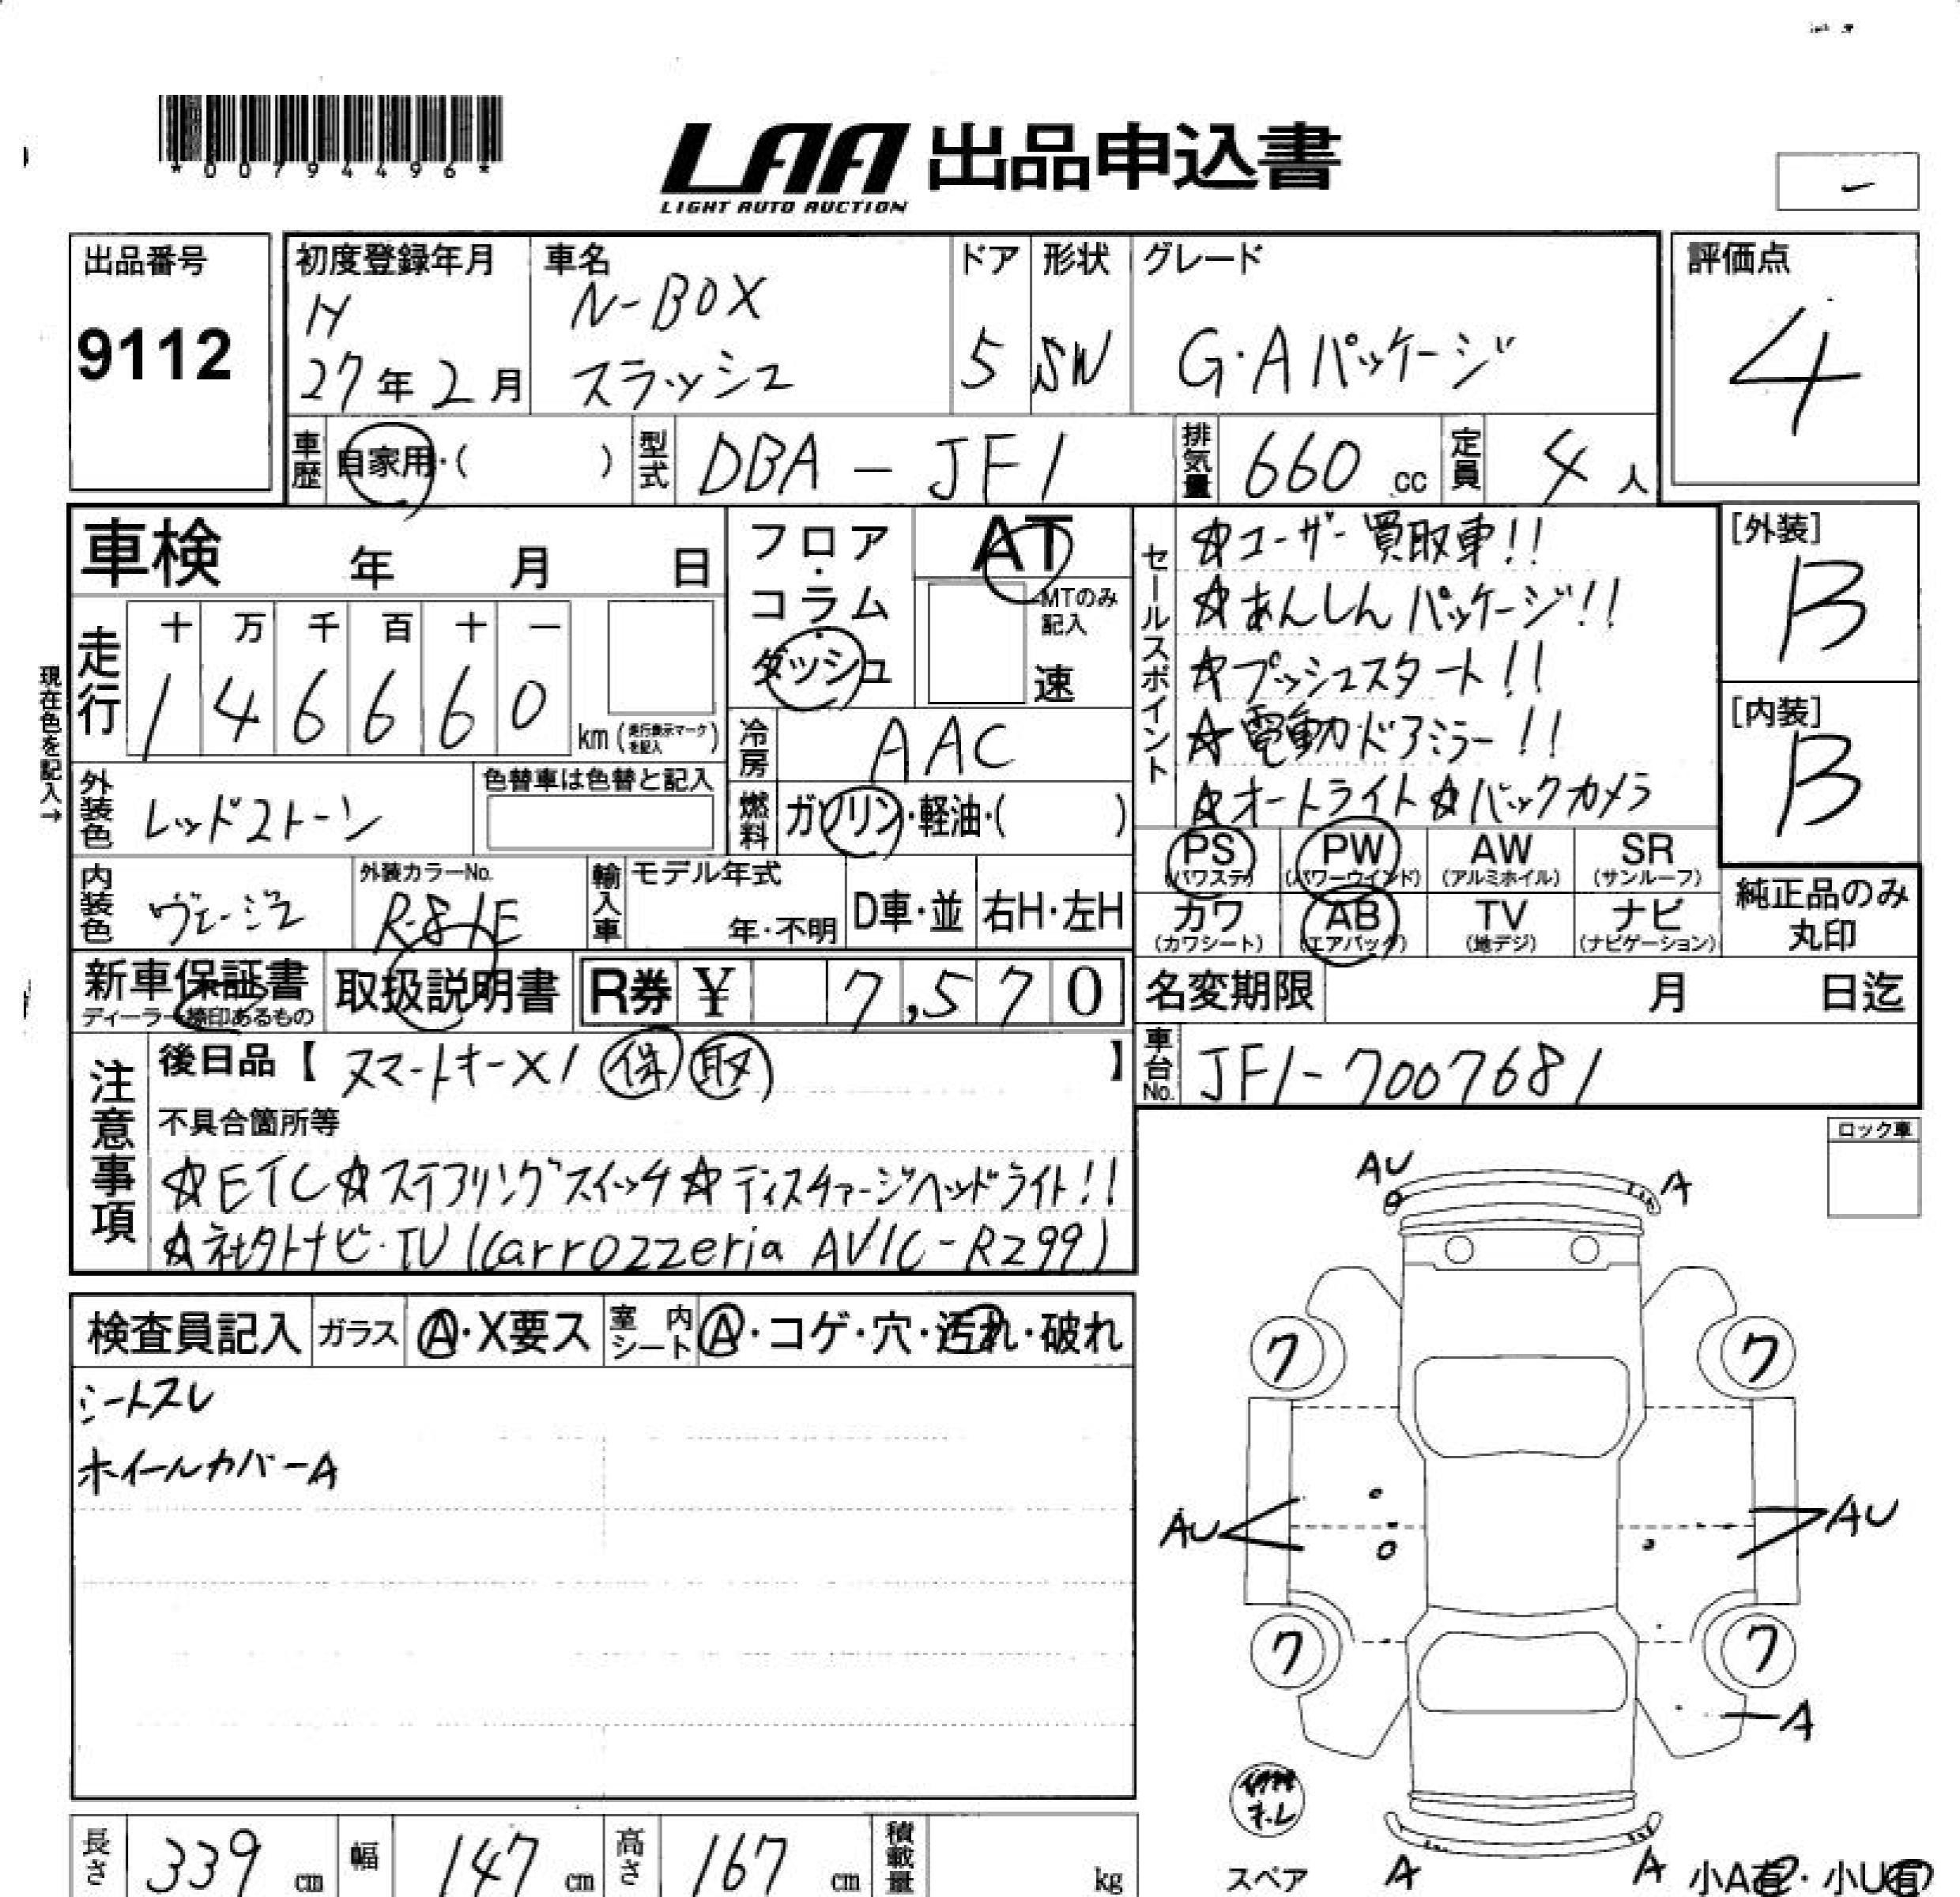 *00794496*
LAA 出品申込書
LIGHT AUTO AUCTION
出品番号
9112
初度登録年月
H
27年2月
車名
N-BOX
スラッシュ
ドア
5
形状
SW
グレード
G・Aパッケージ
評価点
4
車歴 自家用・( )
型式 DBA-JF1
排気量 660 cc
定員 4人
車検 年 月 日
フロア・コラム・ダッシュ
AT
MTのみ記入
速
走行
十 万 千 百 十 一
1 4 6 6 6 0 km(走行表示マークを記入)
現在色を記入→
冷房 AAC
外装色 レッドストーン
色替車は色替と記入
燃料 ガソリン・軽油・( )
内装色 ヴェージュ
外装カラーNo.
R-81E
輸入車
モデル年式
年・不明
D車・並
右H・左H
新車保証書
ディーラー捺印あるもの
取扱説明書
R券 ¥ 7,570
セールスポイント
☆ユーザー買取車!!
☆あんしんパッケージ!!
☆プッシュスタート!!
☆電動ドアミラー!!
☆オートライト☆バックカメラ
[外装]
B
[内装]
B
PS
(パワステ)
PW
(パワーウインド)
AW
(アルミホイル)
SR
(サンルーフ)
カワ
(カワシート)
AB
(エアバッグ)
TV
(地デジ)
ナビ
(ナビゲーション)
純正品のみ
丸印
名変期限 月 日迄
車台No. JF1-7007681
注意事項
後日品【スマートキー×1 保 取】
不具合箇所等
☆ETC☆ステアリングスイッチ☆ディスチャージヘッドライト!!
☆社外ナビ・TV(carrozzeria AVIC-RZ99)
ロック車
検査員記入
ガラス A・X要ス
室内シート A・コゲ・穴・汚れ・破れ
シートスレ
ホイールカバーA
AU
A
ワ
ワ
AU
AU
ワ
ワ
A
スペア
A
A
小A有・小U有
長さ 339 cm
幅 147 cm
高さ 167 cm
積載量 kg